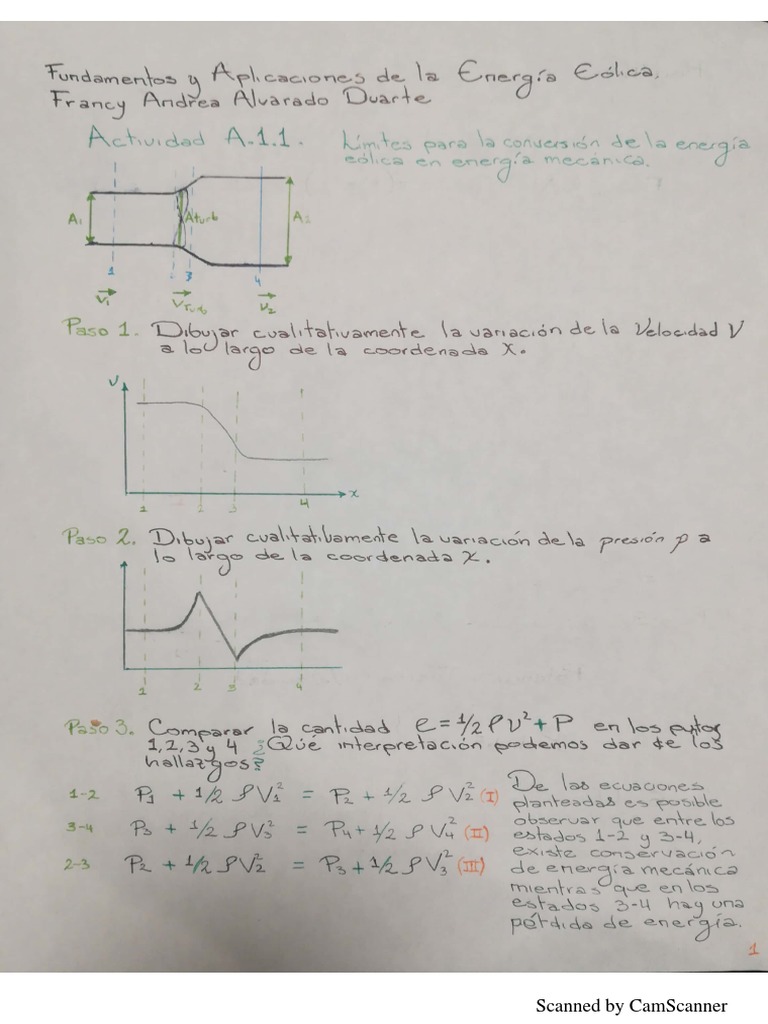 Fundamentos y Aplicaciones de la Energía Eólica.
Francy Andrea Alvarado Duarte
Actividad A.1.1. Límites para la conversión de la energía
eólica en energía mecánica.
A1 Aturb A2
1 2 3 4
V1 VTurb V2
Paso 1. Dibujar cualitativamente la variación de la Velocidad V
a lo largo de la coordenada X.
V
x
1 2 3 4
Paso 2. Dibujar cualitatibamente la variación de la presión p a
lo largo de la coordenada X.
1 2 3 4
Paso 3. Comparar la cantidad e = 1/2 ρ v² + P en los putos
1,2,3 y 4 ¿Qué interpretación podemos dar de los
hallazgos?
1-2 P1 + 1/2 ρ V1² = P2 + 1/2 ρ V2² (I)
3-4 P3 + 1/2 ρ V3² = P4 + 1/2 ρ V4² (II)
2-3 P2 + 1/2 ρ V2² = P3 + 1/2 ρ V3² (III)
De las ecuaciones
planteadas es posible
observar que entre los
estados 1-2 y 3-4,
existe conservación
de energía mecánica
mientras que en los
estados 3-4 hay una
pérdida de energía.
1
Scanned by CamScanner